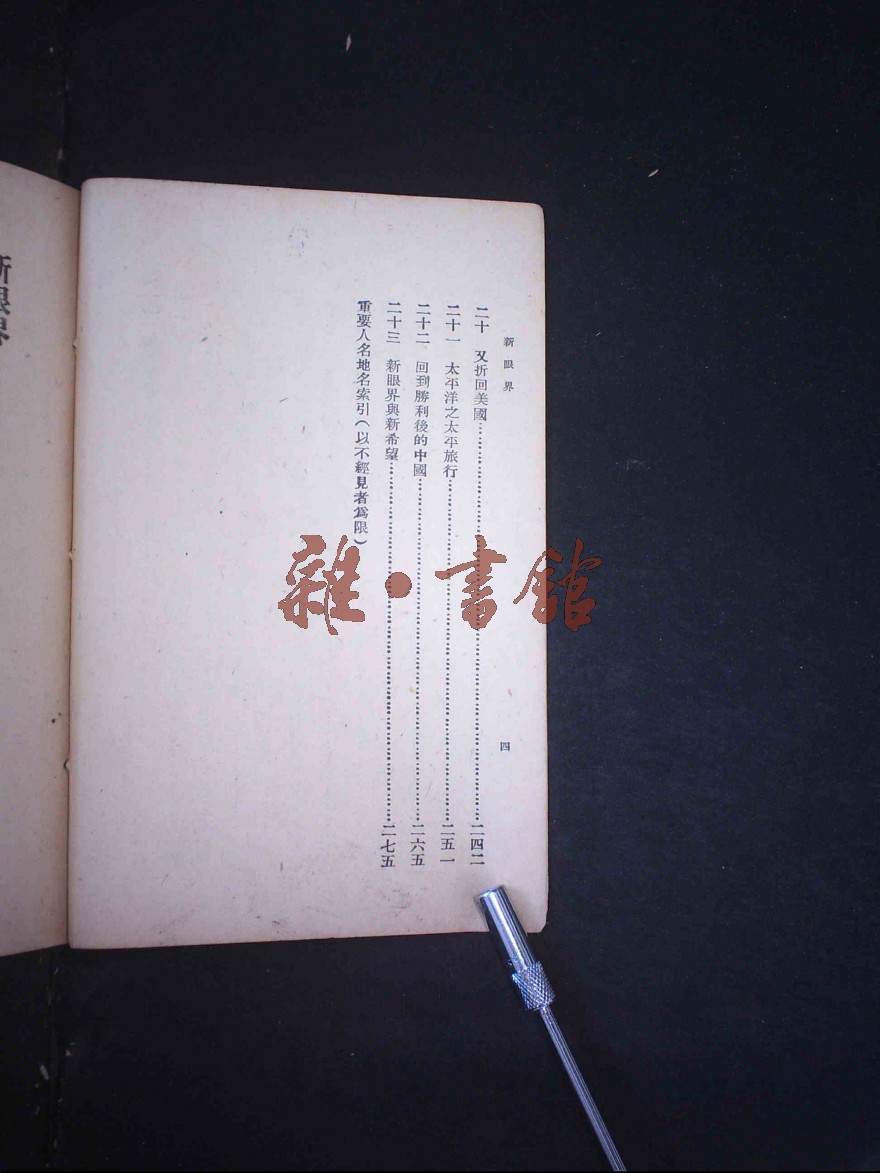 新眼界
二十 又折回美國……二四二
二十一 太平洋之太平旅行……二五一
二十二 回到勝利後的中國……二六五
二十三 新眼界與新希望……二七五
重要人名地名索引(以不經見者爲限)
四
新眼界
雜·書館